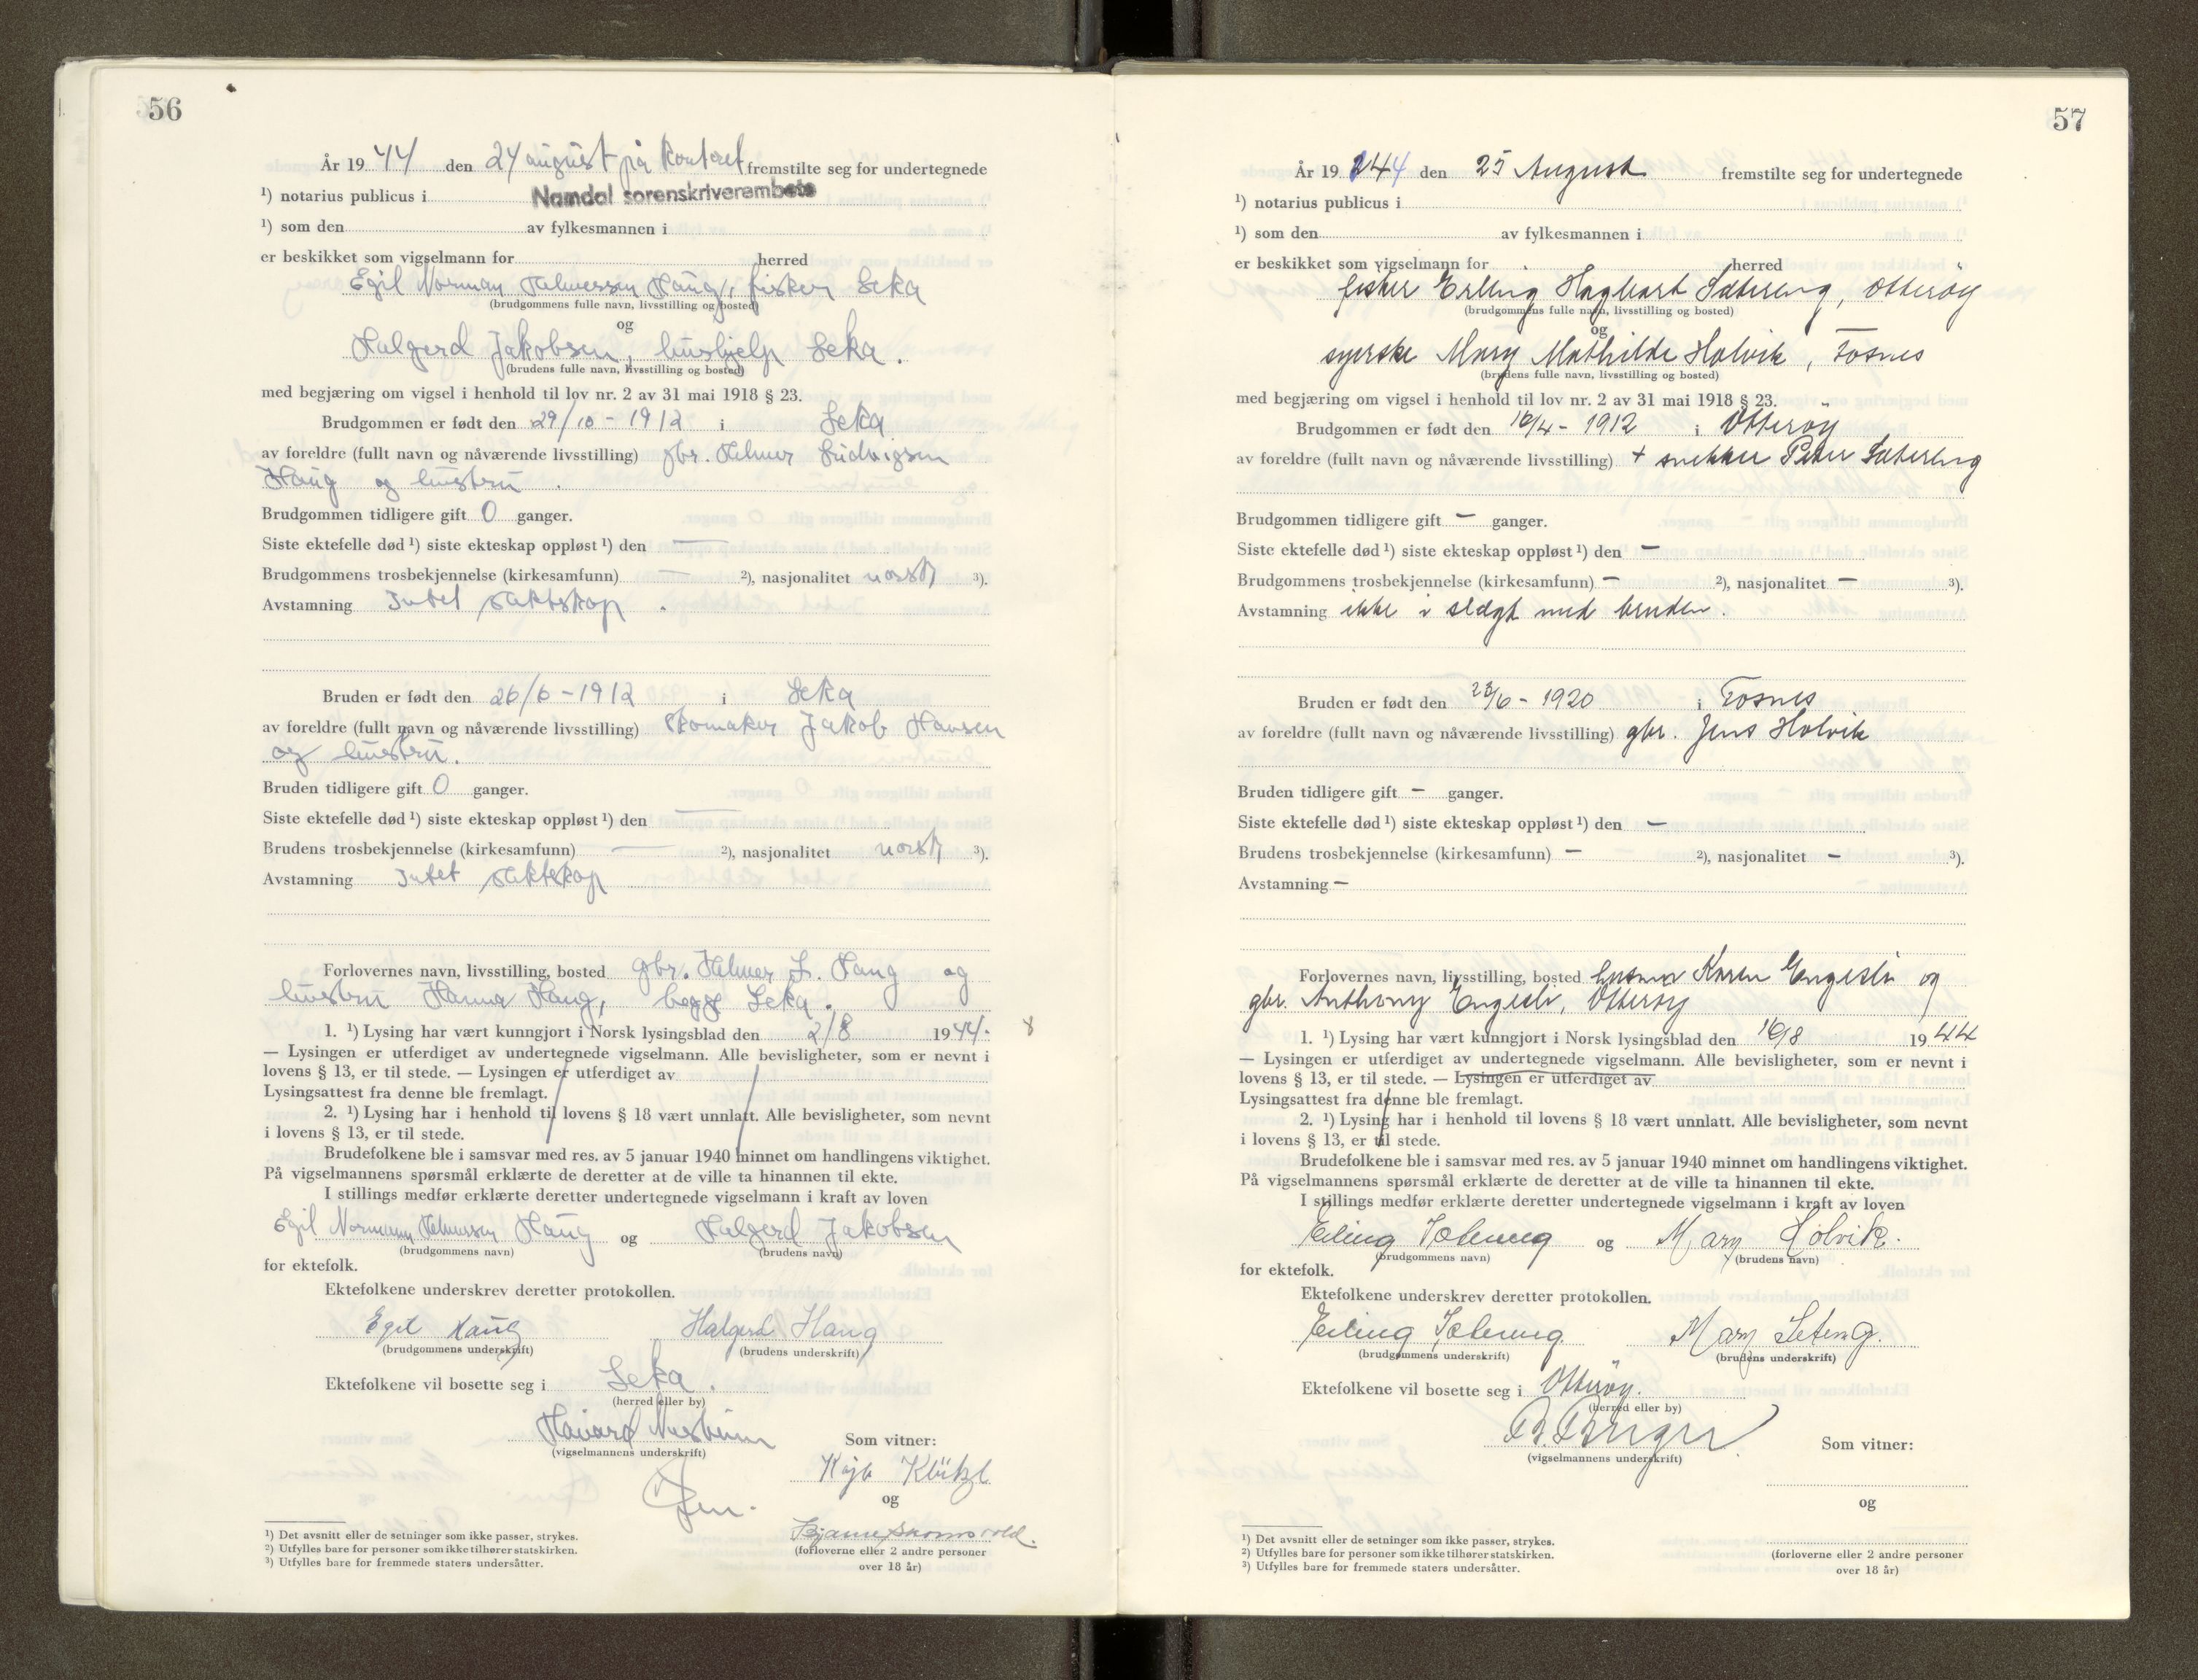 56
År 1944 den 24 august på kontoret fremstilte seg for undertegnede
¹) notarius publicus i Namdal sorenskriverembete
¹) som den av fylkesmannen i
er beskikket som vigselmann for herred
Egil Norman Helmersen Haug, fisker Leka
(brudgommens fulle navn, livsstilling og bosted)
og
Halgerd Jakobsen, hushjelp Leka.
(brudens fulle navn, livsstilling og bosted)
med begjæring om vigsel i henhold til lov nr. 2 av 31 mai 1918 § 23.
Brudgommen er født den 29/10-1912 i Leka
av foreldre (fullt navn og nåværende livsstilling) gbr. Helmer Ludvigsen
Haug og hustru.
Brudgommen tidligere gift 0 ganger.
Siste ektefelle død ¹) siste ekteskap oppløst ¹) den —
Brudgommens trosbekjennelse (kirkesamfunn) — ²), nasjonalitet norsk ³).
Avstamning Intet slektskap.
Bruden er født den 26/6-1912 i Leka
av foreldre (fullt navn og nåværende livsstilling) Skomaker Jakob Hansen
og hustru.
Bruden tidligere gift 0 ganger.
Siste ektefelle død ¹) siste ekteskap oppløst ¹) den —
Brudens trosbekjennelse (kirkesamfunn) — ²), nasjonalitet norsk ³).
Avstamning Intet slektskap
Forlovernes navn, livsstilling, bosted gbr. Helmer L. Haug og
hustru Hanna Haug, begge Leka.
1. ¹) Lysing har vært kunngjort i Norsk lysingsblad den 2/8 1944. 8
— Lysingen er utferdiget av undertegnede vigselmann. Alle bevisligheter, som er nevnt i
lovens § 13, er til stede. — Lysingen er utferdiget av
Lysingsattest fra denne ble fremlagt.
2. ¹) Lysing har i henhold til lovens § 18 vært unnlatt. Alle bevisligheter, som nevnt
i lovens § 13, er til stede.
Brudefolkene ble i samsvar med res. av 5 januar 1940 minnet om handlingens viktighet.
På vigselmannens spørsmål erklærte de deretter at de ville ta hinannen til ekte.
I stillings medfør erklærte deretter undertegnede vigselmann i kraft av loven
Egil Normann Helmersen Haug og Halgerd Jakobsen
(brudgommens navn) (brudens navn)
for ektefolk.
Ektefolkene underskrev deretter protokollen.
Egil Haug Halgerd Haug
(brudgommens underskrift) (brudens underskrift)
Ektefolkene vil bosette seg i Leka.
(herred eller by)
Håvard
(vigselmannens underskrift)
Som vitner:
og
Bjarne
(forloverne eller 2 andre personer
over 18 år)
¹) Det avsnitt eller de setninger som ikke passer, strykes.
²) Utfylles bare for personer som ikke tilhører statskirken.
³) Utfylles bare for fremmede staters undersåtter.
57
År 1944 den 25 August fremstilte seg for undertegnede
¹) notarius publicus i
¹) som den av fylkesmannen i
er beskikket som vigselmann for herred
fisker Erling Hagbart Sætereng, Otterøy
(brudgommens fulle navn, livsstilling og bosted)
og
syerske Mary Mathilde Holvik, Fosnes
(brudens fulle navn, livsstilling og bosted)
med begjæring om vigsel i henhold til lov nr. 2 av 31 mai 1918 § 23.
Brudgommen er født den 16/4-1912 i Otterøy
av foreldre (fullt navn og nåværende livsstilling) + snekker Peter Sætereng
Brudgommen tidligere gift — ganger.
Siste ektefelle død ¹) siste ekteskap oppløst ¹) den —
Brudgommens trosbekjennelse (kirkesamfunn) — ²), nasjonalitet — ³).
Avstamning ikke i slægt med bruden.
Bruden er født den 23/6-1920 i Fosnes
av foreldre (fullt navn og nåværende livsstilling) gbr. Jens Holvik
Bruden tidligere gift — ganger.
Siste ektefelle død ¹) siste ekteskap oppløst ¹) den —
Brudens trosbekjennelse (kirkesamfunn) — ²), nasjonalitet — ³).
Avstamning —
Forlovernes navn, livsstilling, bosted husmor Karen Engesli og
gbr. Anthony Engesli, Otterøy
1. ¹) Lysing har vært kunngjort i Norsk lysingsblad den 16/8 1944
— Lysingen er utferdiget av undertegnede vigselmann. Alle bevisligheter, som er nevnt i
lovens § 13, er til stede. — Lysingen er utferdiget av
Lysingsattest fra denne ble fremlagt.
2. ¹) Lysing har i henhold til lovens § 18 vært unnlatt. Alle bevisligheter, som nevnt
i lovens § 13, er til stede.
Brudefolkene ble i samsvar med res. av 5 januar 1940 minnet om handlingens viktighet.
På vigselmannens spørsmål erklærte de deretter at de ville ta hinannen til ekte.
I stillings medfør erklærte deretter undertegnede vigselmann i kraft av loven
Erling Sætereng og Mary Holvik.
(brudgommens navn) (brudens navn)
for ektefolk.
Ektefolkene underskrev deretter protokollen.
Erling Sætereng Mary Seteng.
(brudgommens underskrift) (brudens underskrift)
Ektefolkene vil bosette seg i Otterøy.
(herred eller by)
(vigselmannens underskrift)
Som vitner:
og
(forloverne eller 2 andre personer
over 18 år)
¹) Det avsnitt eller de setninger som ikke passer, strykes.
²) Utfylles bare for personer som ikke tilhører statskirken.
³) Utfylles bare for fremmede staters undersåtter.